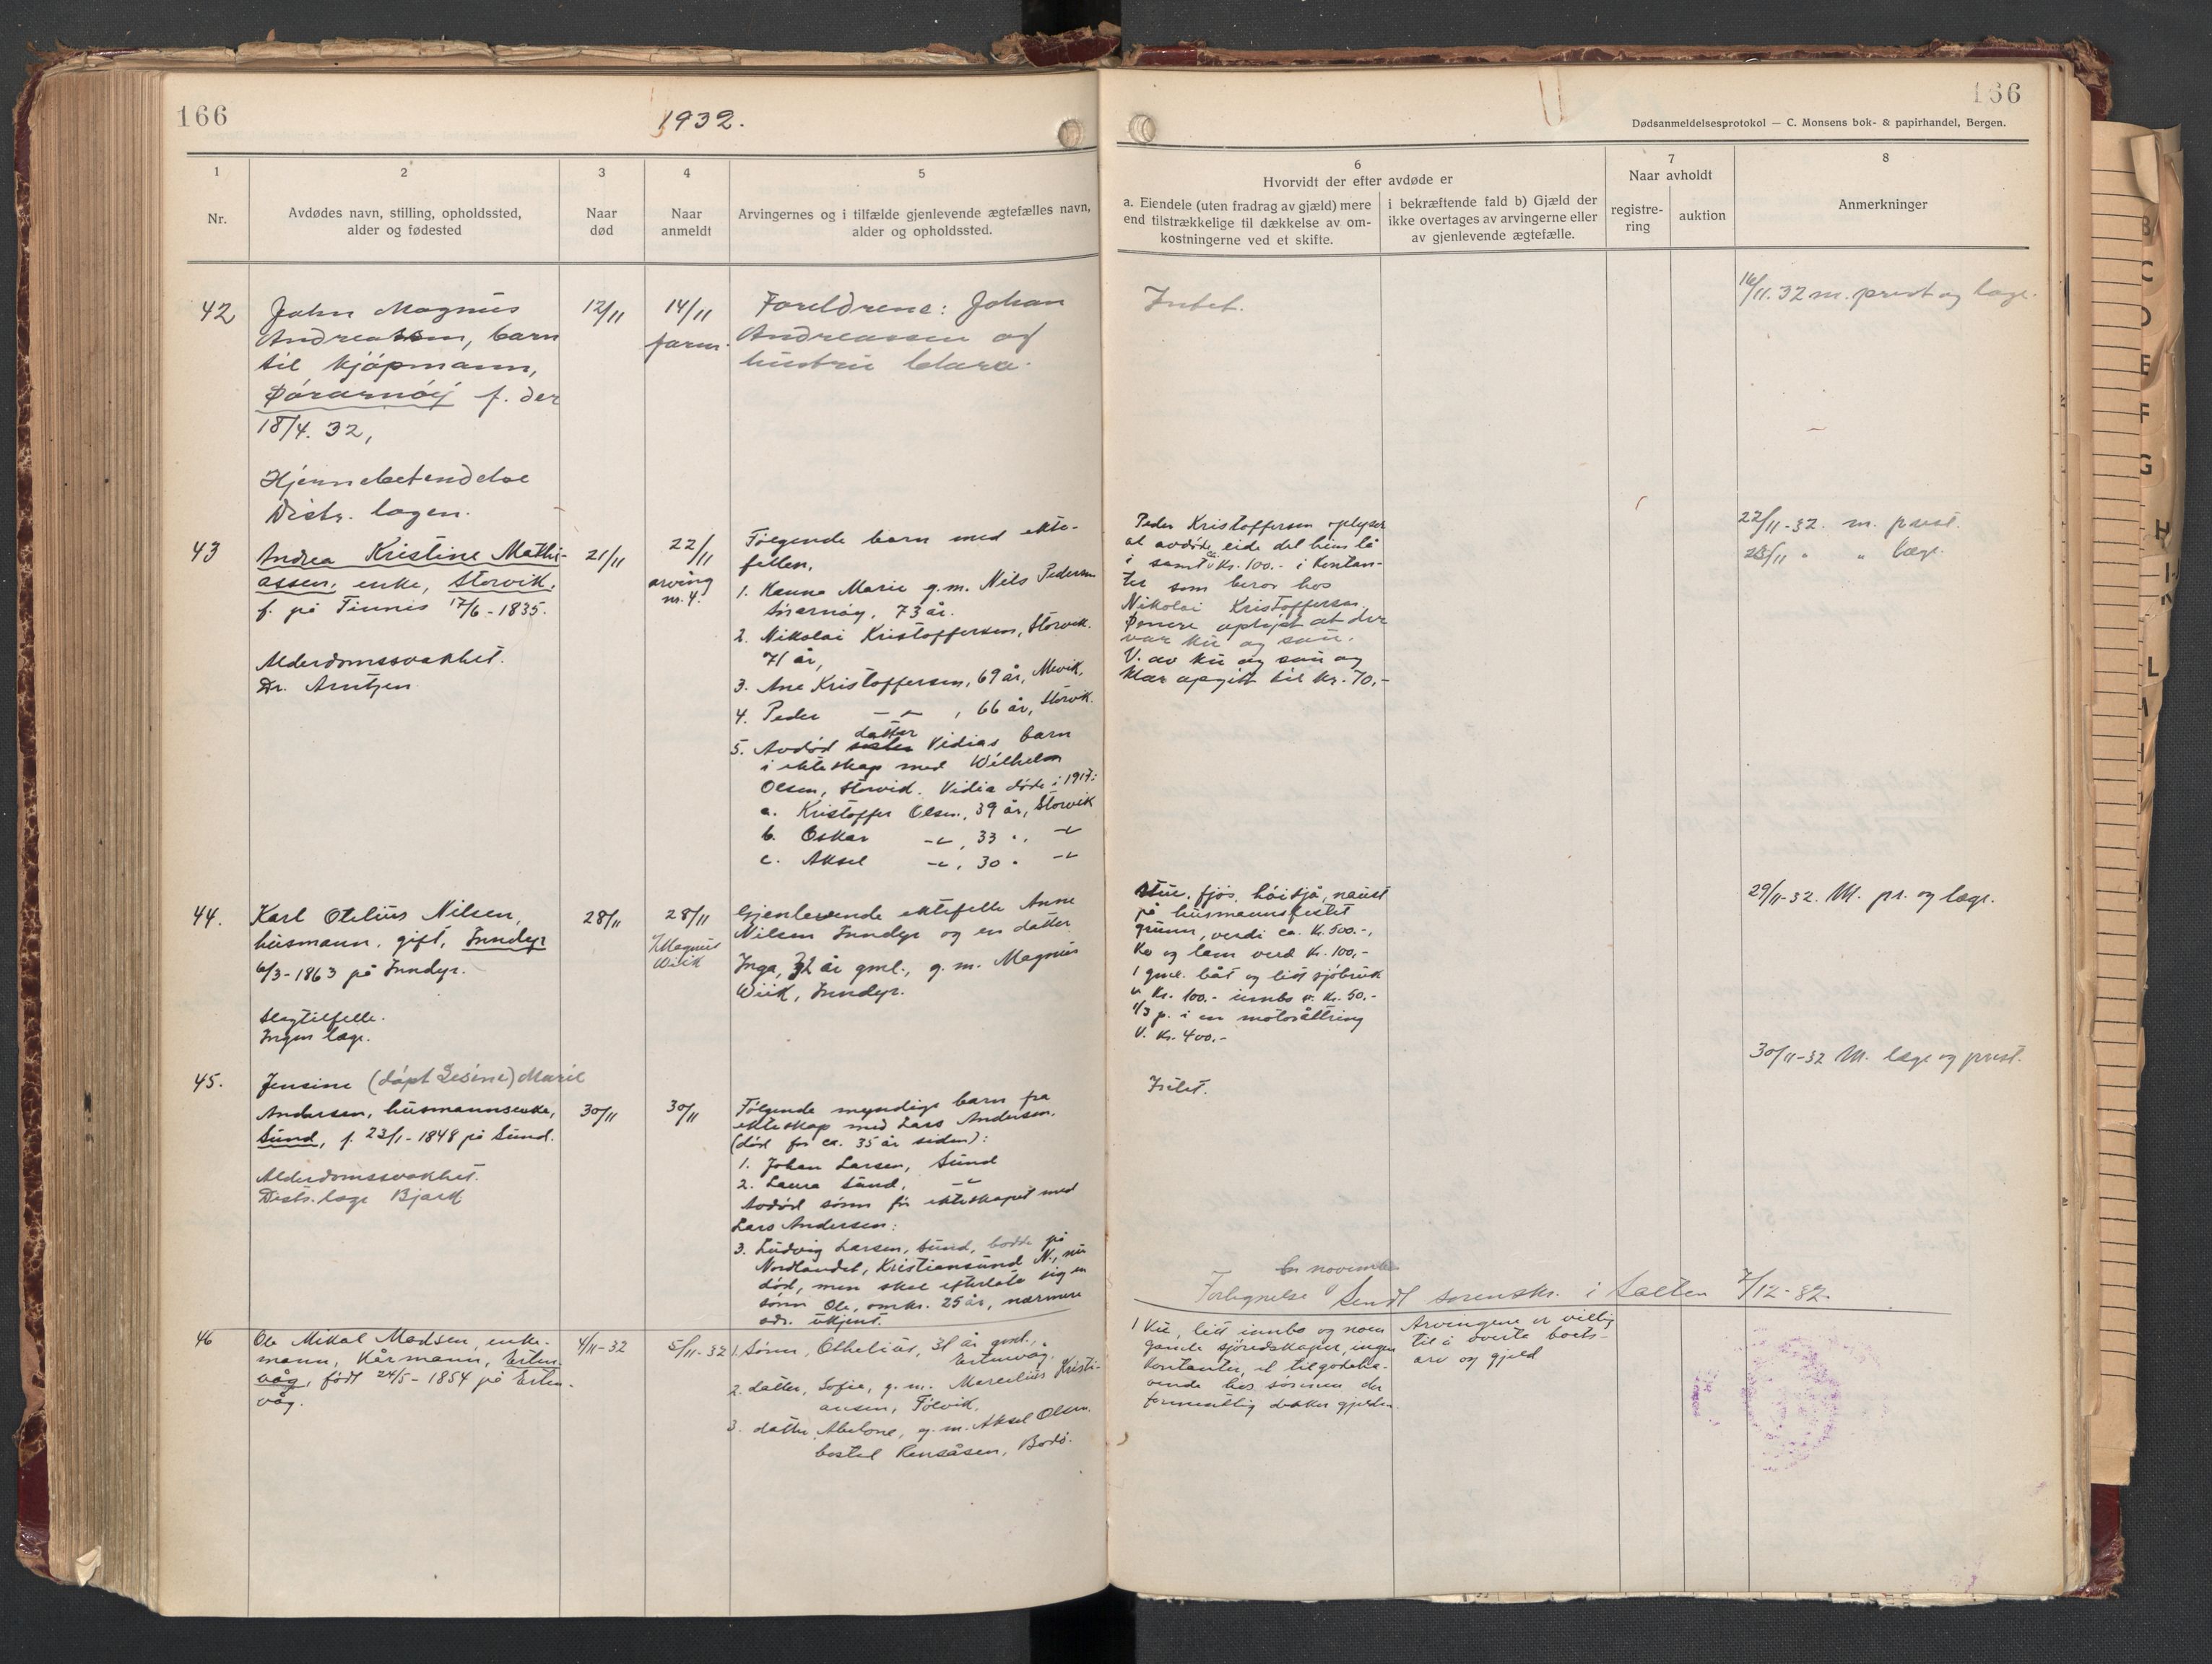 166
1932.
166
Dødsanmeldelsesprotokol — C. Monsens bok- & papirhandel, Bergen.
1
Nr.
2
Avdødes navn, stilling, opholdssted,
alder og fødested
3
Naar
død
4
Naar
anmeldt
5
Arvingernes og i tilfælde gjenlevende ægtefælles navn,
alder og opholdssted.
6
Hvorvidt der efter avdøde er
a. Eiendele (uten fradrag av gjæld) mere
end tilstrækkelige til dækkelse av om-
kostningerne ved et skifte.
i bekræftende fald b) Gjæld der
ikke overtages av arvingerne eller
av gjenlevende ægtefælle.
7
Naar avholdt
registre-
ring
auktion
8
Anmerkninger
42
John Magnus
Andreassen, barn
til kjøpmann,
Sørarnøy f. der
18/4. 32,
Hjernebetendelse
Distr. lægen.
12/11
14/11
faren.
Foreldrene: Johan
Andreassen og
hustru Clara.
Intet.
16/11. 32 m. prest og læge.
43
Andrea Kristine Mathi-
assen, enke, Storvik.
f. på Finnes 17/6 - 1835.
Alderdomssvakhet.
Dr. Arntzen
21/11
22/11
arving
nr. 4.
Følgende barn med ekte-
fellen,
1. Hanna Marie g.m. Nils Pedersen
Sørarnøy, 73 år.
2. Nikolai Kristoffersen, Storvik.
71 år,
3. Ane Kristoffersen, 69 år, Mevik.
4. Peder —"— , 66 år, Storvik.
5. Avdød datter Vidias barn
i ekteskap med Wilhelm
Olsen, Storvik. Vidia døde i 1917:
a. Kristoffer Olsen, 39 år, Storvik
b. Oskar -"-, 33 " -"-
c. Aksel -"-, 30 " -"-
Peder Kristoffersen oplyser
at avdøde eide det hun lå
i samt kr. 100.- i kontan-
ter som beror hos
Nikolai Kristoffersen.
Senere oplyst at der
var ku og sau.
V. av ku og sau og
klær opgitt til kr. 70,-
22/11-32. m. prest.
23/11 " " læge.
44.
Karl Otelius Nilsen,
husmann, gift, Inndyr
6/3-1863 på Inndyr.
Slagtilfelle.
Ingen læge.
28/11
28/11
Magnus
Wiik
Gjenlevende ektefelle Anne
Nilsen Inndyr og en datter
Inga, 32 år gml., g. m. Magnus
Wiik, Inndyr.
Stue, fjøs, høisjå, naust
på husmannsfestet
grunn, verdi ca. kr. 500.-,
Ko og lam verd kr. 100,-
1 gml. båt og litt sjøbruk
v. kr. 100.- innbo v. kr. 50.-
1/3 p. i en motoråttring
V. kr. 400.-
29/11-32. M. pr. og læge.
45.
Jensine (døpt Zesine) Marie
Andersen, husmannsenke,
Sund, f. 23/1-1848 på Sund.
Alderdomssvakhet.
Distr. læge Bjark
30/11
30/11
Følgende myndige barn fra
ekteskap med Lars Andersen,
(død for ca. 35 år siden):
1. Johan Larsen, Sund
2. Laura Sund, -"-
Avdød sønn før ekteskapet med
Lars Andersen:
3. Ludvig Larsen, Sund, bodde på
Nordlandet, Kristiansund N., nu
død, men skal efterlate sig en
sønn Ole, omkr. 25 år, nærmere
adr. ukjent.
Intet.
30/11-32 M. læge og prest.
for november
Fortegnelse sendt sorenskr. i Salten 7/12-32.
46
Ole Mikal Madsen, enke-
mann, kårmann, Erten-
våg, født 24/5-1854 på Erten-
våg.
4/11-32
5/11-32
1. Sønn, Othelias, 31 år gml.,
Ertenvåg.
2. datter, Sofie, g. m. Marcelius Kristi-
ansen, Tølvik.
3. datter Abelone, g. m. Aksel Olsen,
bosted Rensåsen, Bodø.
1 ku, litt innbo og noen
gamle sjøredskaper, ingen
kontanter, et tilgodeha-
vende hos sønnen der
formentlig dekker gjelden.
Arvingene er villig
til i overta boets
arv og gjeld